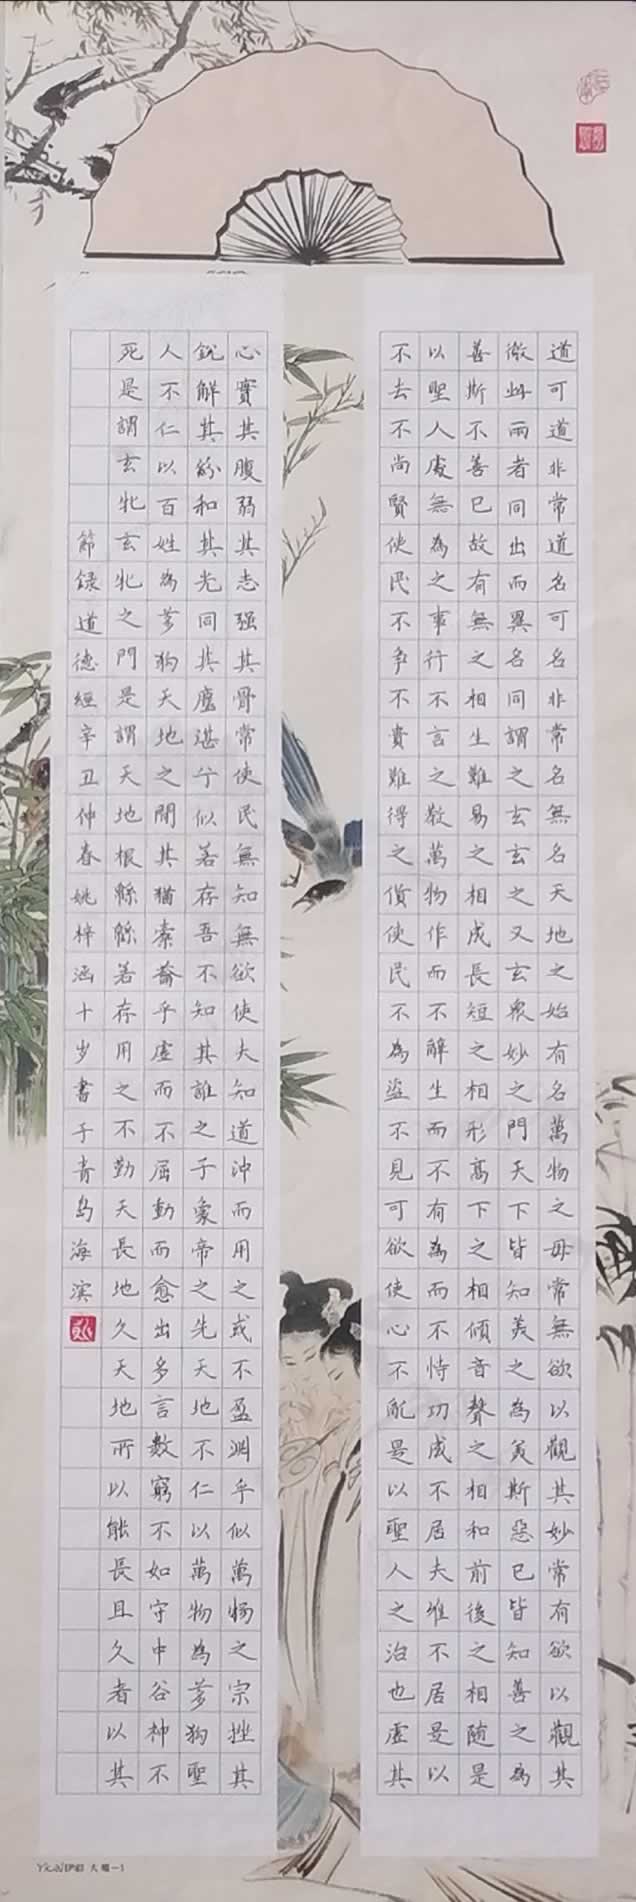 道可道非常道名可名非常名無名天地之始有名萬物之毋常無欲以觀其妙常有欲以觀其
徼此兩者同出而異名同謂之玄玄之又玄衆妙之門天下皆知美之為美斯惡已皆知善之為
善斯不善已故有無之相生難易之相成長短之相形高下之相傾音聲之相和前後之相随是
以聖人處無為之事行不言之教萬物作而不辭生而不有為而不恃功成不居夫唯不居是以
不去不尚賢使民不争不貴難得之貨使民不為盜不見可欲使心不亂是以聖人之治也虛其
心實其腹弱其志强其骨常使民無知無欲使夫知道沖而用之或不盈渊乎似萬物之宗挫其
鋭解其紛和其光同其塵湛兮似若存吾不知其誰之子象帝之先天地不仁以萬物為芻狗聖
人不仁以百姓為芻狗天地之間其猶橐龠乎虛而不屈動而愈出多言數窮不如守中谷神不
死是謂玄牝玄牝之門是謂天地根緜緜若存用之不勤天長地久天地所以能長且久者以其
節録道德經辛丑仲春姚梓涵十岁書于青岛海滨